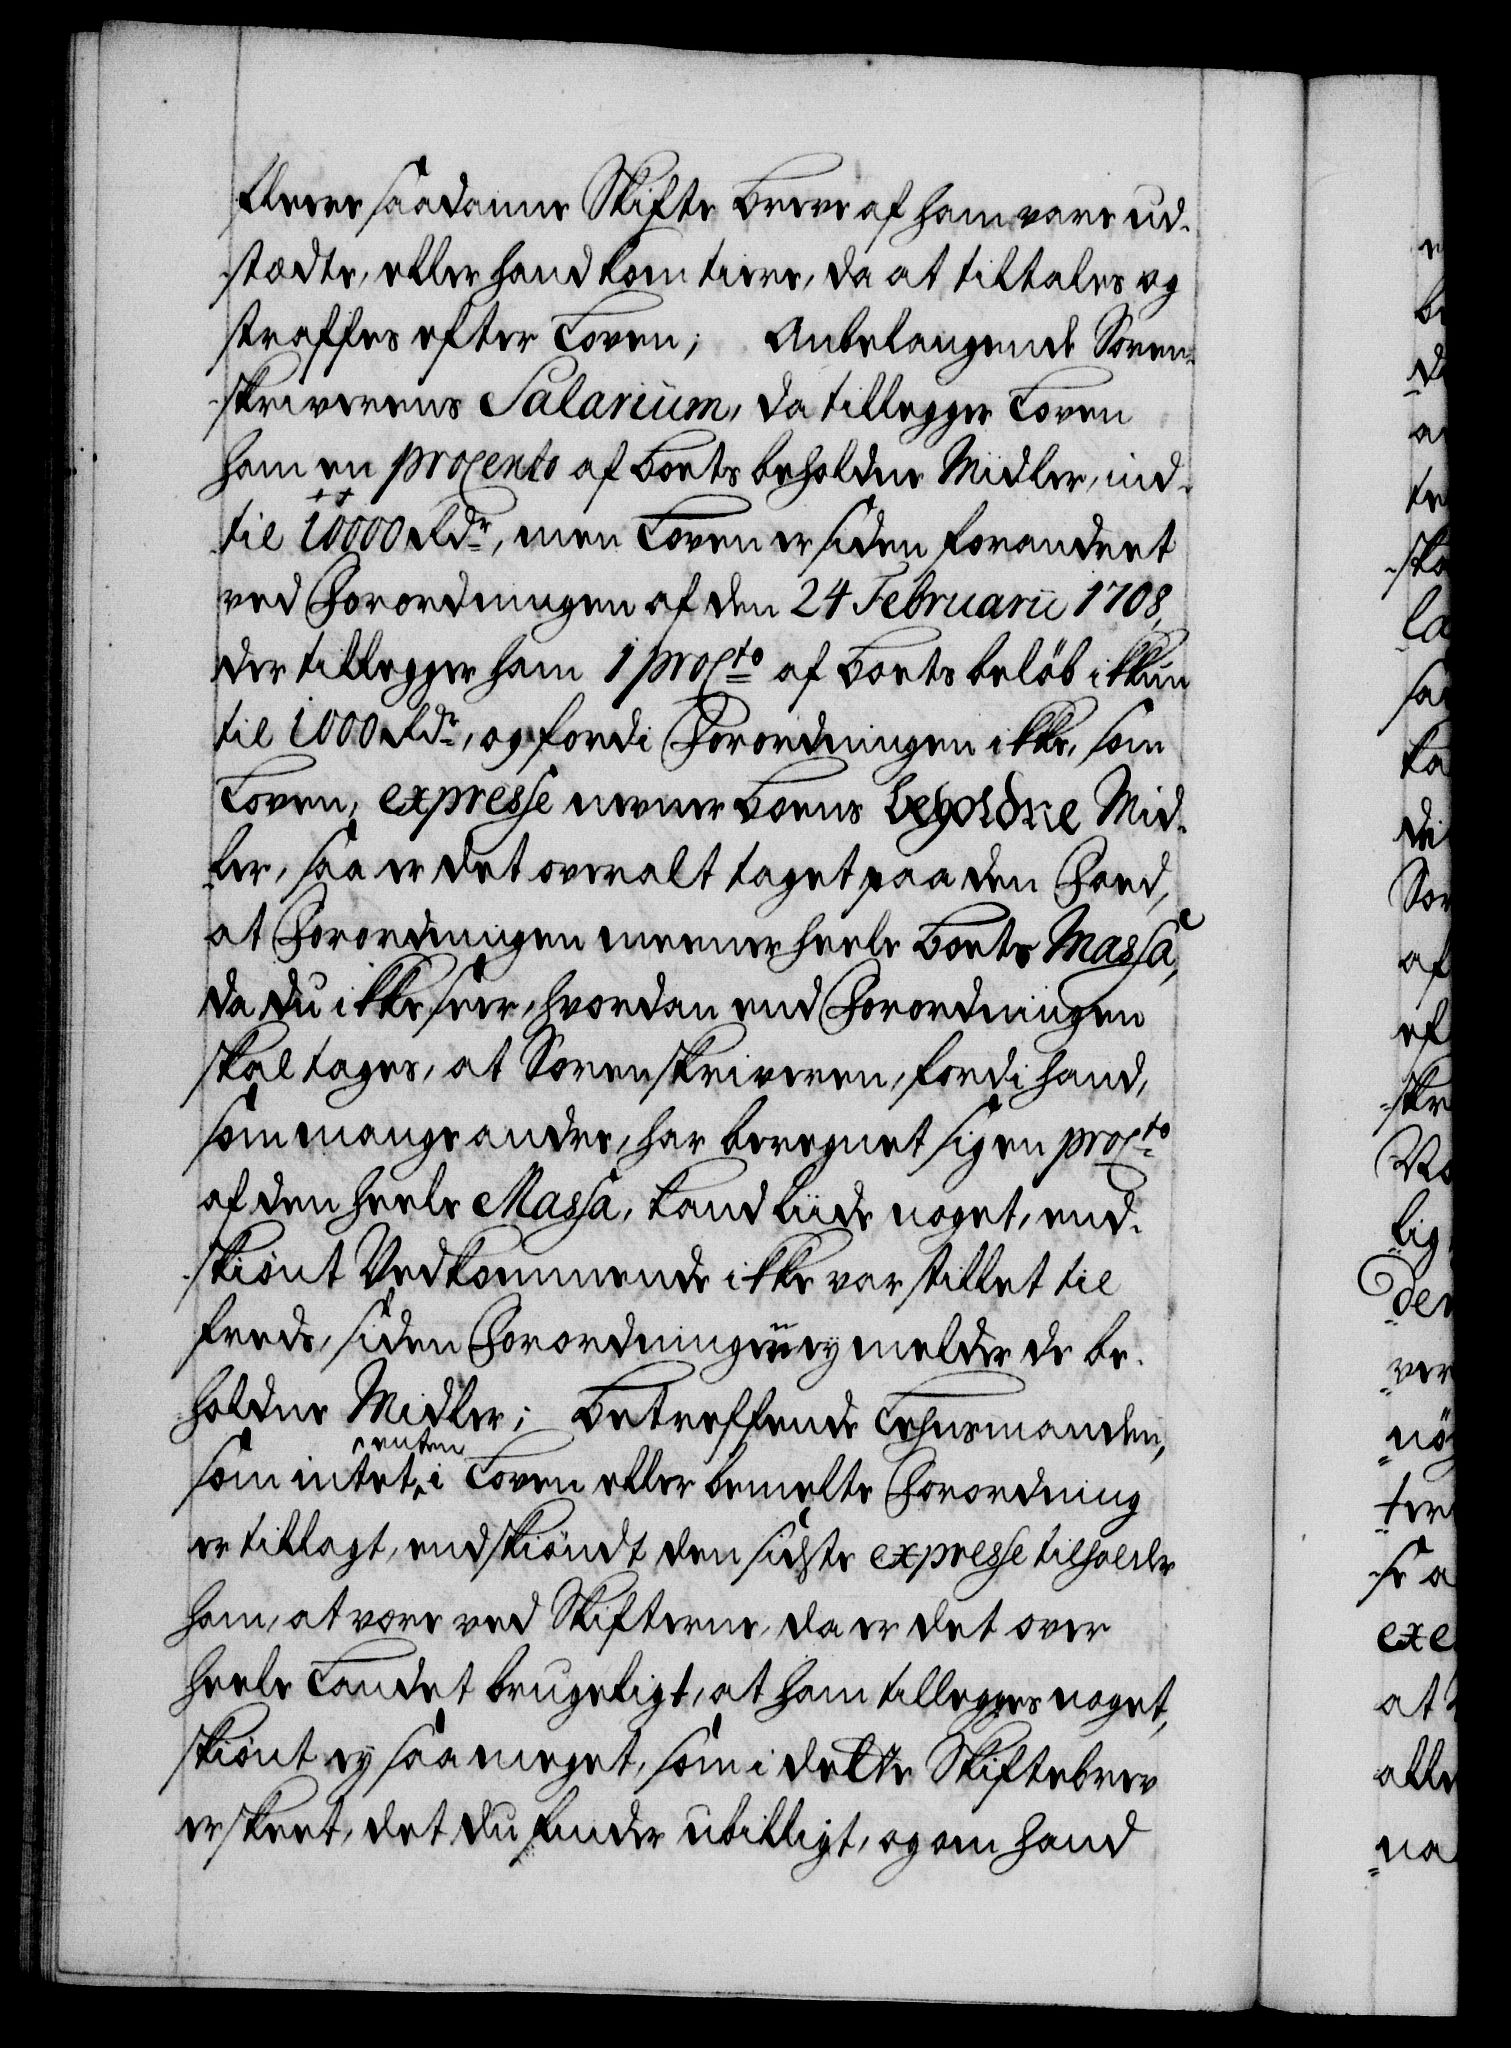 fleere saadanne Skifte Breve af ham vare ud-
-stædte, eller hand kom tiere, da at tiltales og
straffes efter Loven; Anbelangende Soren-
-skriverens Salarium, da tillegger Loven
ham en procento af Boets beholdne Midler, ind-
til 10000 Rdr, men Loven er siden forandret
ved Forordningen af den 24 Februarii 1708,
der tillegger ham 1 procto af Boets beløb ikkun
til 1000 Rdr, og fordi Forordningen ikke, som
Loven, expresse nevner Boens beholdne Mid-
-ler, saa er det overalt taget paa den Foed,
at Forordningen meener heele Boets Massa,
da du ikke seer, hvordan end Forordningen
skal tages, at Sorenskriveren, fordi hand,
som mange andre, har beregnet sig en procto
af den heele Massa, kand liide noget, end-
-skiønt Vedkommende ikke var stillet til
freds, siden Forordningen ey melder de be-
holdne Midler; Betreffende Lehnsmanden,
som intet enten i Loven eller bemelte Forordning
er tillagt, endskiøndt den sidste expresse tilholder
ham, at være ved Skifterne, da er det over
heele Landet brugeligt, at ham tillegges noget,
skiønt ey saa meget, som i dette Skiftebrev
er skeet, det du finder ubilligt, og om hand